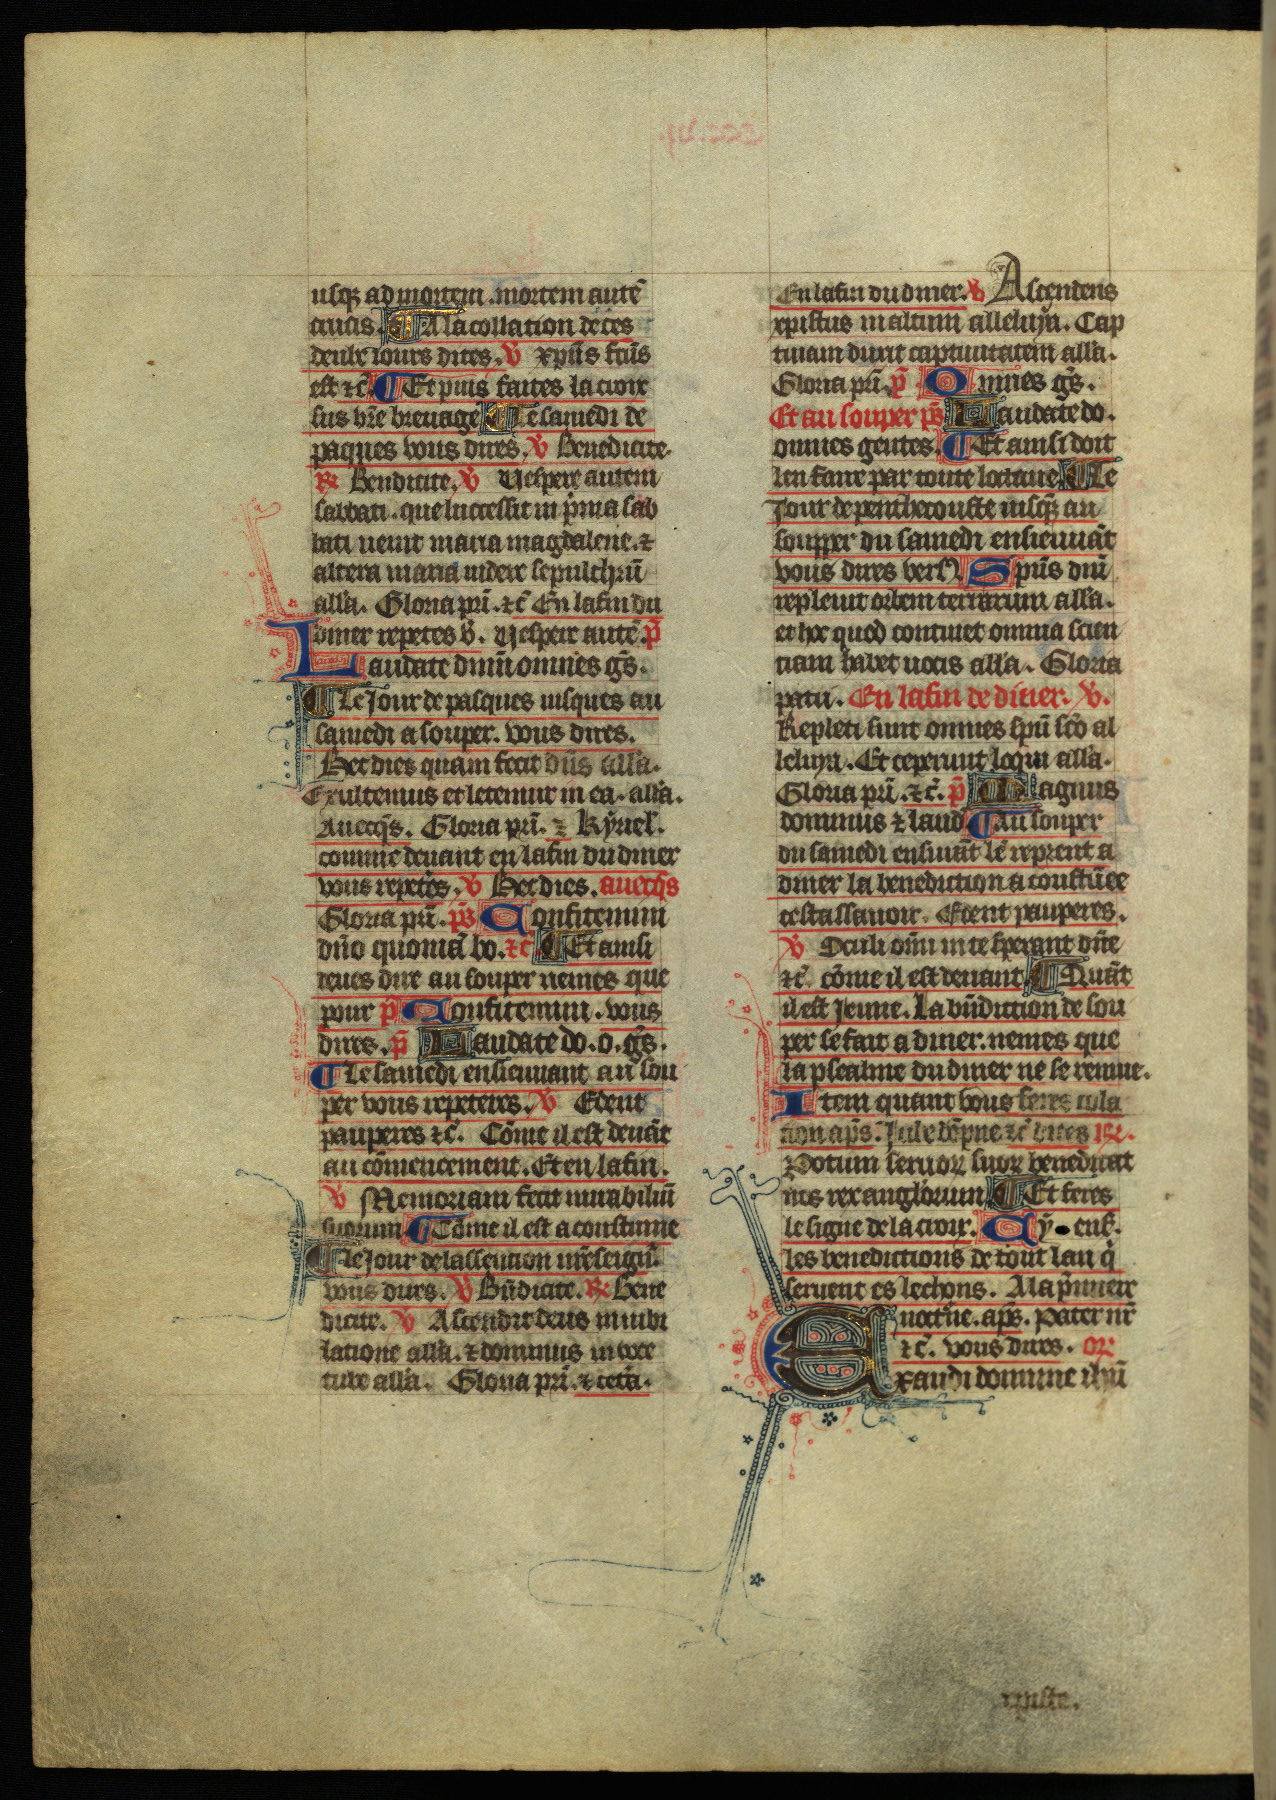 usq3 ad mortem. mortem aute̅
crucis. ¶ A la collation de ces
deulx iours dites. V̅ xp̅us fc̅us
est ⁊ c̅ ¶ Et puis faites la croix
sus vr̅e breuage ¶ Le samedi de
paques vous dires. V̅ Benedicite.
R̅ Bendicite. V̅ Uespere autem
sabbati. que lucessit in p̅ma sab
bati uenit maria magdalene. ⁊
altera maria uidere sepulchru̅
all'a. Gloria pr̅i. ⁊ c̅ En lafin du
diner repetes v̅. Uespere aute̅. p̅
Laudate dnm̅ omnes gs̅.
¶ Le Jour de pasques iusques au
samedi a souper. vous dires.
Hec dies quam fecit dn̅s all'a.
Exultemus et letemur in ea. all'a.
Auecq̅s. Gloria pr̅i. ⁊ Kyriel'.
comme deuant en lafin du diner
vous repetes. V̅ Hec dies. auecq̅s
Gloria pr̅i. ps̅ Confitemini
dn̅o quonia̅ bo. ⁊ c̅ ¶ Et ainsi
deues dire au souper nemes que
pour p̅ Confitemini. vous
dires. p̅ Laudate do. o. gs̅.
¶ Le samedi ensieuuant au sou
per vous repeteres. V̅ Edent
pauperes ⁊ c̅. Co̅me il est deua̅t
au co̅mencement. Et en lafin.
V̅ Memoriam fecit mirabiliu̅
suorum ¶ Co̅me il est a coustume
¶ Le Jour de lassention nr̅eseign̅.
vous dires. V̅ Bn̅dicite. R̅ Bene
dicite. V̅ Ascendit deus in iubi
latione all'a. ⁊ dominus in voce
tube all'a. Gloria pr̅i. ⁊ cet̅a.
En lafin du diner. V̅ Ascendens
xpistus in altum alleluya. Cap
tiuam duxit captiuitatem all'a.
Gloria pr̅i. p̅ Omnes gs̅.
Et au souper ps̅ Laudate do.
omnes gentes. ¶ Et ainsi doit
len faire par toute loctaue ¶ Le
Jour de penthecouste iusq3 au
soupper du samedi ensieuua̅t
vous dires vers' Sp̅us dni̅
repleuit orbem terrarum all'a.
et hoc quod continet omnia scien
tiam habet uocis all'a. Gloria
patri. En lafin de disner. V̅.
Repleti sunt omnes sp̅u sc̅o al
leluya. Et ceperunt loqui all'a.
Gloria pr̅i. ⁊ c̅. p̅ Magnus
dominus ⁊ laud' ¶ au souper
du samedi ensiuua̅t le reprent a
diner la benediction a coustu̅ee
cest assauoir. Edent pauperes.
V̅ Oculi om̅i in te sperant dn̅e
⁊ c̅. co̅me il est deuant ¶ Qua̅t
il est Jeune. La bn̅diction de sou
per se fait a diner. nemes que
la psealme du diner ne se remue.
Item quant vous feres cola
tion ap̅s. Jube do̅pne ⁊ c̅ dites R̅.
Potum seruor̅ suor̅ benedicat
nos rex anglorum ¶ Et feres
le signe de la croix. Cy • ens̅.
les benedictions de tout lan q̅
seruent es lechons. A la p̅miere
nocturne. ap̅s. pater nr̅
⁊ c̅. vous dires. or̅
Exaudi domine ihu̅
xpiste.